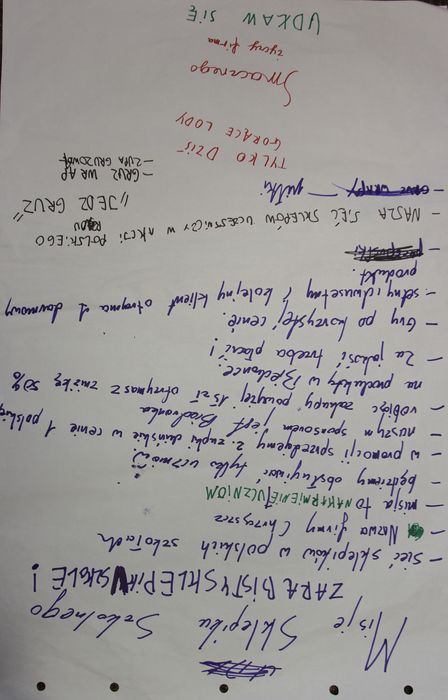 Misje Sklepiku Szkolnego
ZARĄBISTY SKLEPIK W SZKOLE!
- sieć sklepików w polskich szkołach
- Nazwa firmy Chrzyszcz
- misja to NAKARMIENIE UCZNIOM
- będziemy obsługiwać tylko uczniów
- w promocji sprzedajemy 2 zupki chińskie w cenie 1 polskiej
- naszym sponsorem jest Biedronka
- robiąc zakupy powyżej 15 zł otrzymasz zniżkę 50%
na produkty w Biedronce
- Za jakość trzeba płacić!
- Gry po korzystnej cenie.
- setny i dwusetny i kolejny klient otrzyma 1 darmowy
produkt.
- NASZA SIEĆ SKLEPÓW UCZESTNICZY W AKCJI POLSKIEGO
RZĄDU "JEDZ GRUZ"
- GRUZ WRAP
- ZUPA GRUZOWA
TYLKO DZIŚ
GORĄCE LODY
Smacznego
życzy firma
UDŁAW SIĘ